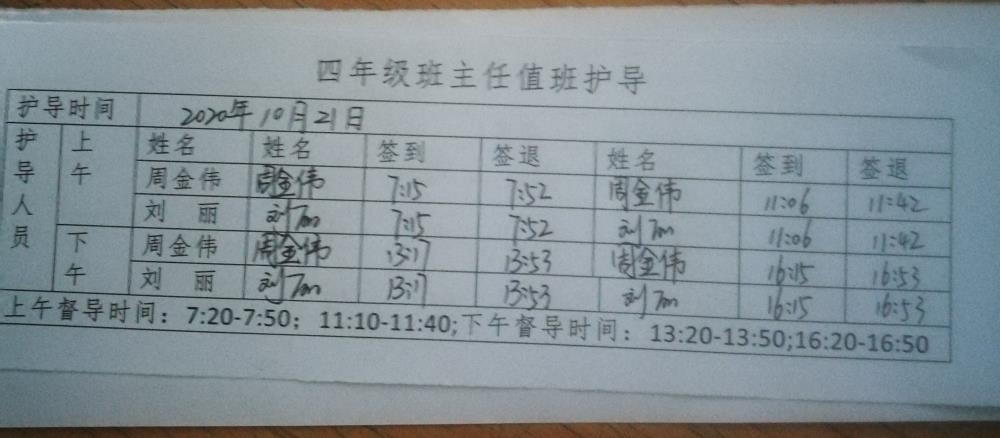 四年级班主任值班护导
护导时间 2020年10月21日
护导人员 上午 姓名 姓名 签到 签退 姓名 签到 签退
周金伟 周金伟 7:15 7:52 周金伟 11:06 11:42
刘 丽 刘丽 7:15 7:52 刘丽 11:06 11:42
下午 周金伟 周金伟 13:17 13:53 周金伟 16:15 16:53
刘 丽 刘丽 13:17 13:53 刘丽 16:15 16:53
上午督导时间：7:20-7:50；11:10-11:40;下午督导时间：13:20-13:50;16:20-16:50